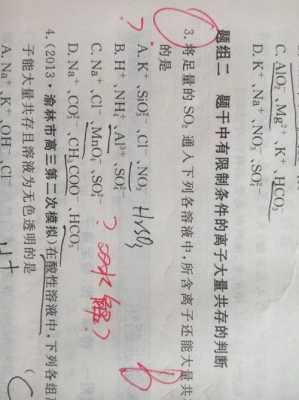 C. AlO₂⁻、Mg²⁺、K⁺、HCO₃⁻
D. K⁺、Na⁺、NO₃⁻、SO₃²⁻
题组二 题干中有限制条件的离子大量共存的判断
3. 将足量的 SO₂ 通入下列各溶液中,所含离子还能大量共
的是
A. K⁺、SiO₃²⁻、Cl⁻、NO₃⁻ H₂SO₃
B. H⁺、NH₄⁺、Al³⁺、SO₄²⁻
C. Na⁺、Cl⁻、MnO₄⁻、SO₄²⁻
D. Na⁺、CO₃²⁻、CH₃COO⁻、HCO₃⁻
B
4. (2013·榆林市高三第二次模拟)在酸性溶液中,下列各组
子能大量共存且溶液为无色透明的是
A. Na⁺、K⁺、OH⁻、Cl⁻
C